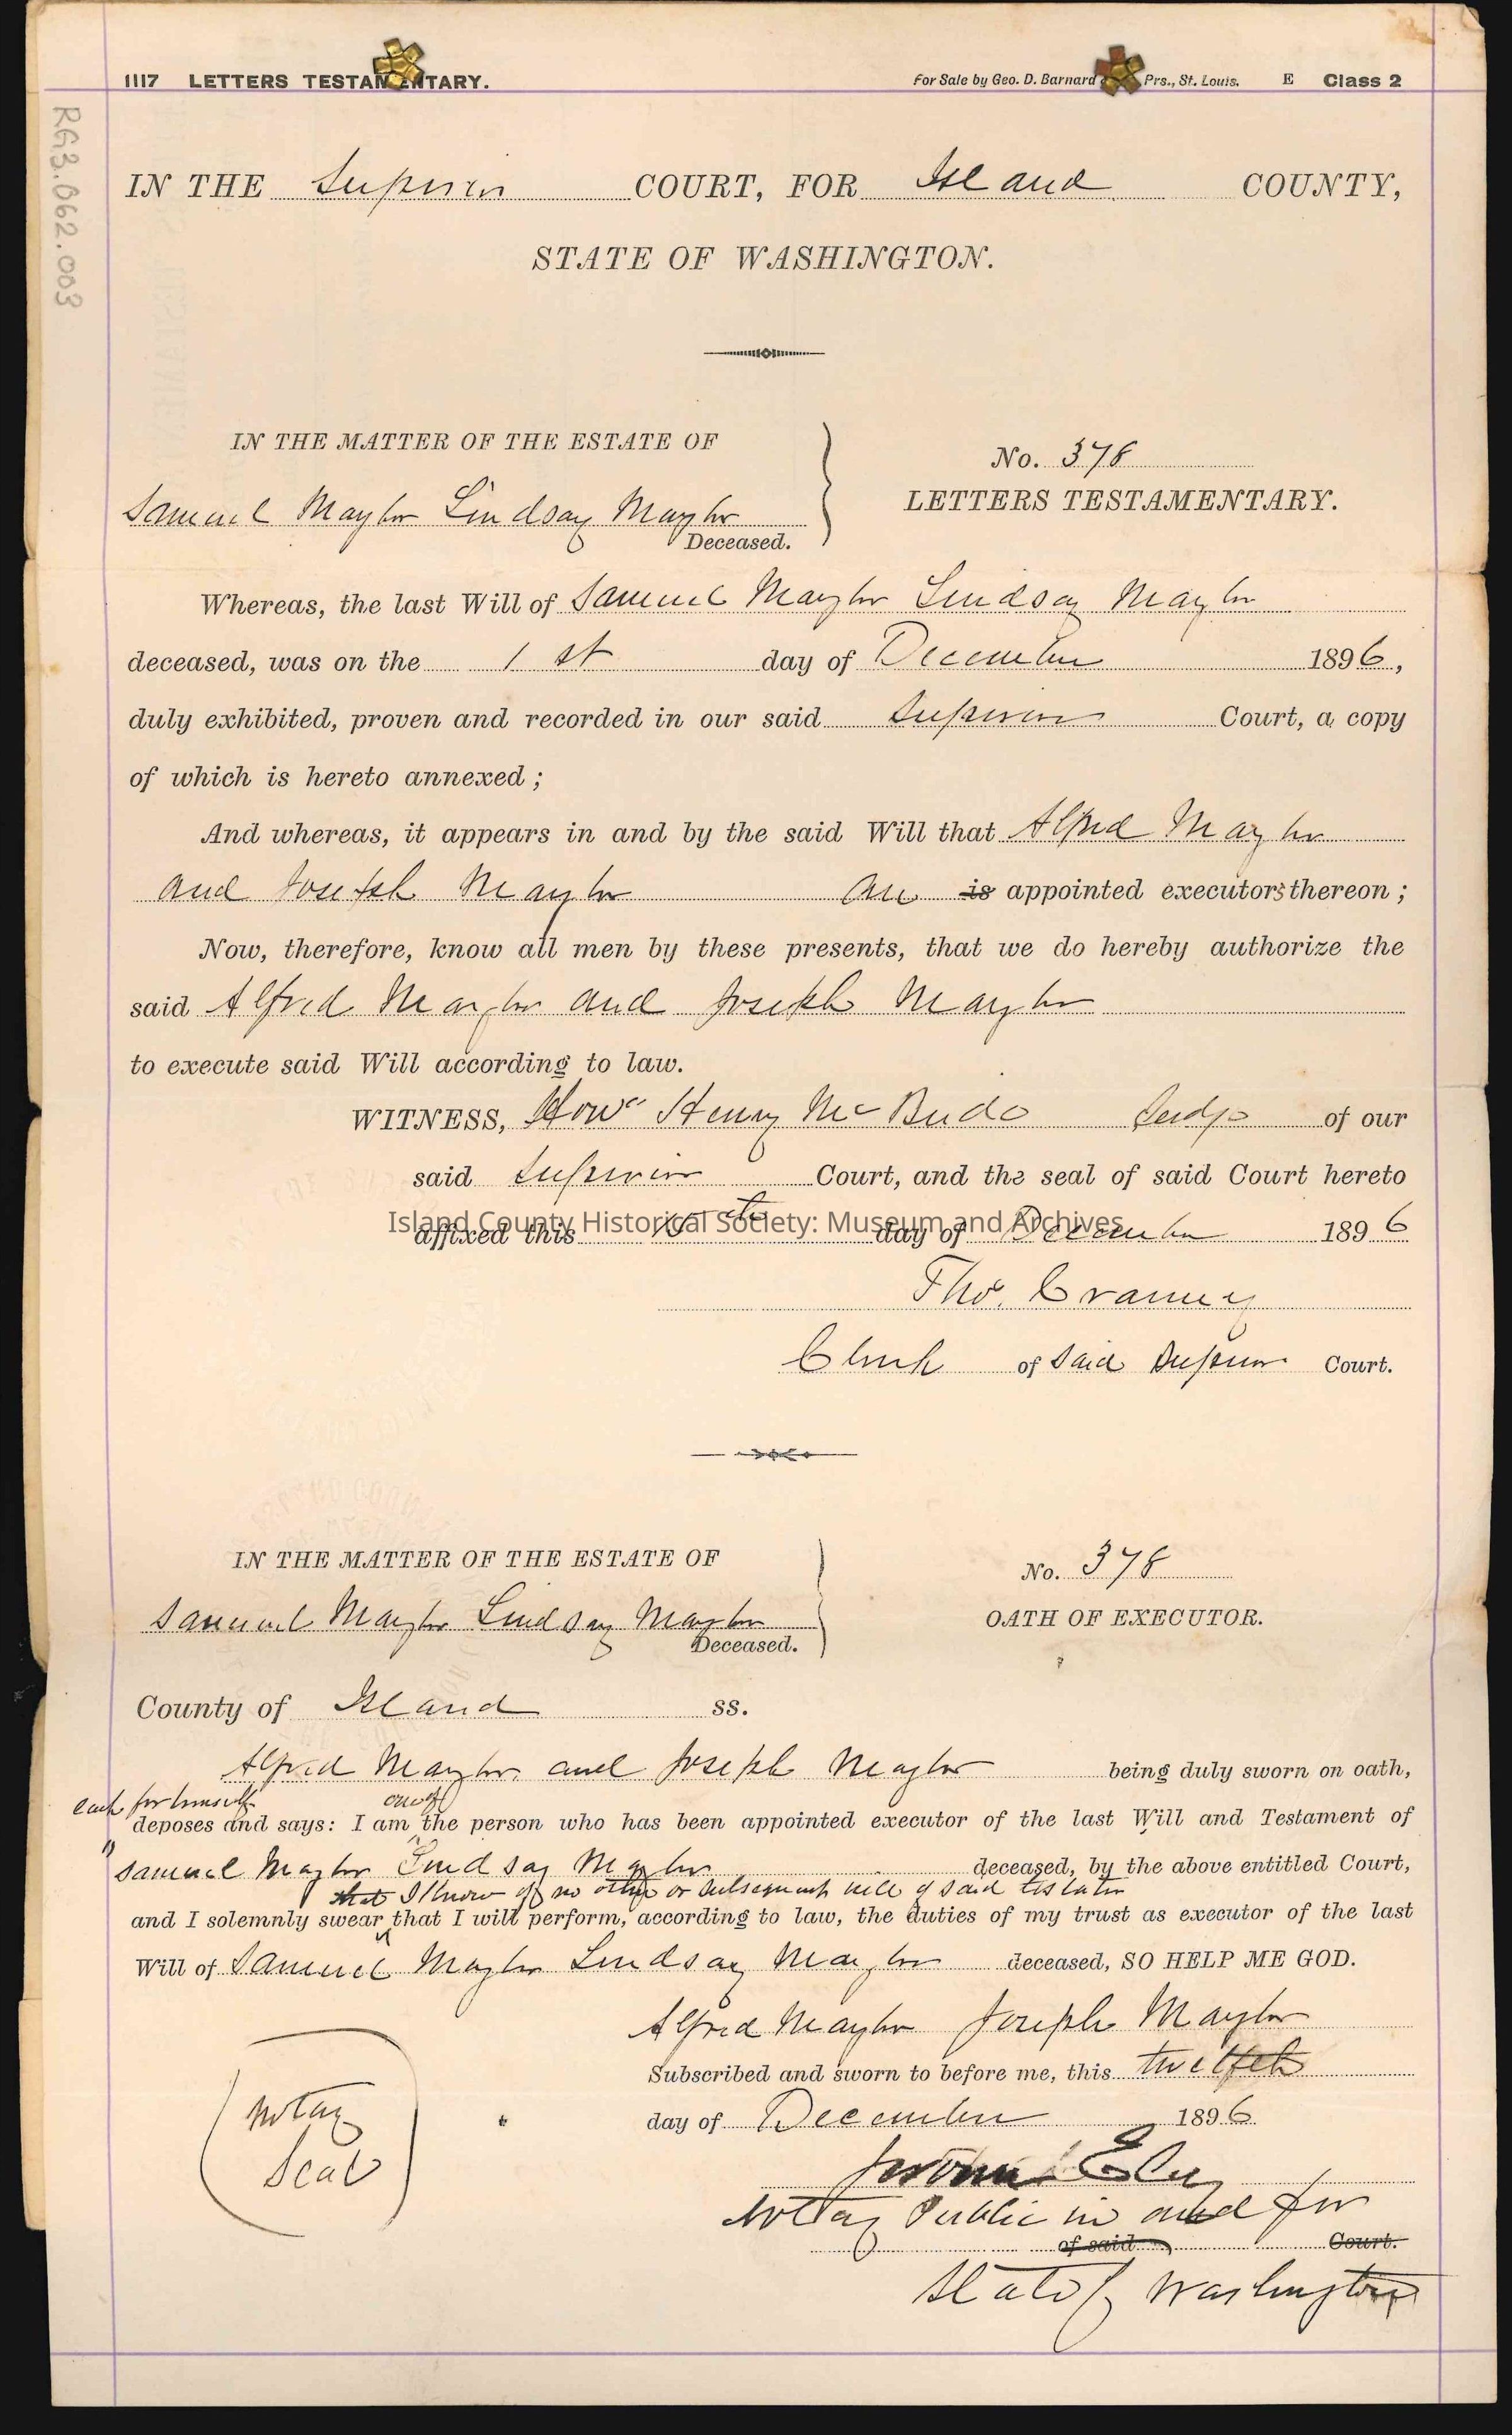 1117 LETTERS TESTAMENTARY. For Sale by Geo. D. Barnard Prs., St. Louis. E Class 2
RG3.062.003
IN THE Superior COURT, FOR Island COUNTY,
STATE OF WASHINGTON.
IN THE MATTER OF THE ESTATE OF
Samuel Maylor Lindsay Maylor
Deceased.
No. 378
LETTERS TESTAMENTARY.
Whereas, the last Will of Samuel Maylor Lindsay Maylor
deceased, was on the 1st day of December 1896,
duly exhibited, proven and recorded in our said Superior Court, a copy
of which is hereto annexed;
And whereas, it appears in and by the said Will that Alfred Maylor
and Joseph Maylor are is appointed executors thereon;
Now, therefore, know all men by these presents, that we do hereby authorize the
said Alfred Maylor and Joseph Maylor
to execute said Will according to law.
WITNESS, Honr Henry McBride Judge of our
said Superior Court, and the seal of said Court hereto
Island County Historical Society: Museum and Archives
affixed this day of December 1896
Thos. Cranney
Clerk of said Superior Court.
IN THE MATTER OF THE ESTATE OF
Samuel Maylor Lindsay Maylor
Deceased.
No. 378
OATH OF EXECUTOR.
County of Island ss.
Alfred Maylor and Joseph Maylor being duly sworn on oath,
each for himself one of
deposes and says: I am the person who has been appointed executor of the last Will and Testament of
Samuel Maylor Lindsay Maylor deceased, by the above entitled Court,
that I know of no other or subsequent will of said testator
and I solemnly swear that I will perform, according to law, the duties of my trust as executor of the last
Will of Samuel Maylor Lindsay Maylor deceased, SO HELP ME GOD.
Alfred Maylor Joseph Maylor
Subscribed and sworn to before me, this twelfth
day of December 1896
Notary
Seal
Jerome Ely
Notary Public in and for
of said Court.
State of Washington